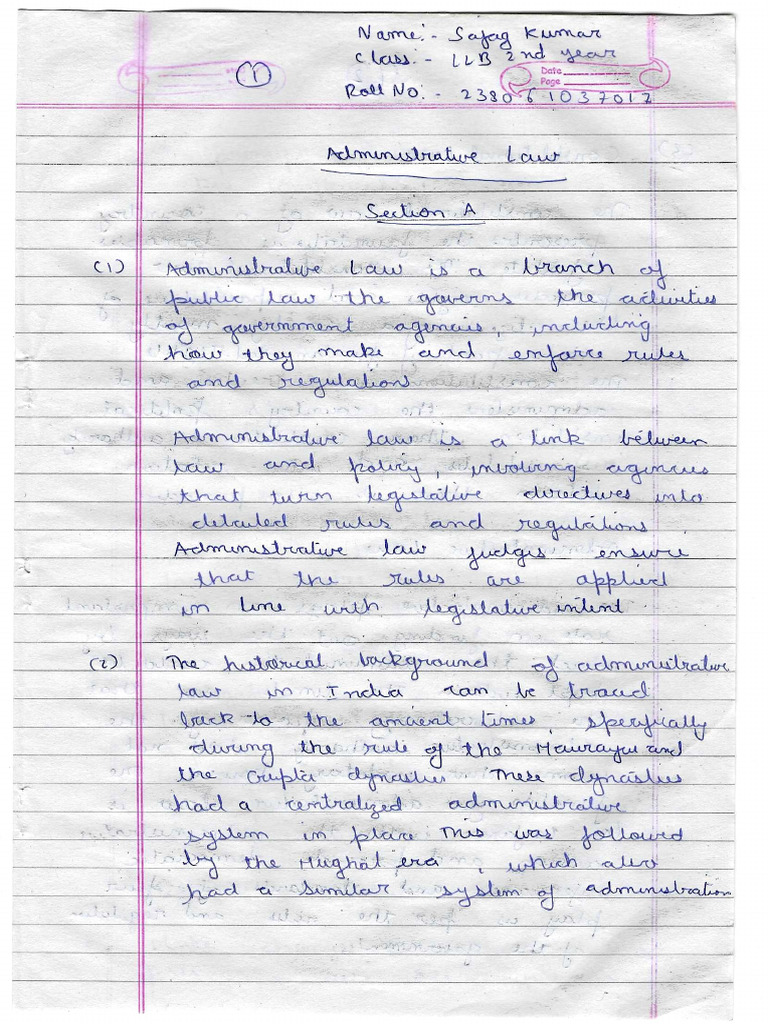 Name:- Sajag Kumar
Class:- LLB 2nd year
(1)
Date
Page
Roll No:- 238061037012
Administrative Law
Section A
(1) Administrative Law is a branch of
public law the governs the activities
of government agencies, including
how they make and enforce rules
and regulation
Administrative law is a link between
law and policy, involving agencies
that turn legislative directives into
detailed rules and regulations
Administrative law judges ensure
that the rules are applied
in line with legislative intent
(2) The historical background of administrative
law in India can be traced
back to the ancient times, specifically
during the rule of the Mauryan and
the Gupta dynasties These dynasties
had a centralized administrative
system in place This was followed
by the Mughal era, which also
had a similar system of administration